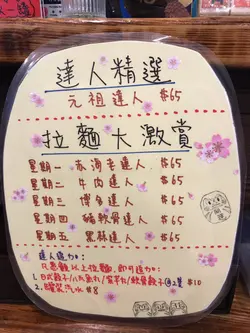 達人精選
元祖達人 $65
拉麵大激賞
星期一 赤海老達人 $65
星期二 牛肉達人 $65
星期三 博多達人 $65
星期四 豬軟骨達人 $65
星期五 黑蒜達人 $65
達人魅力:
只惠顧以上拉麵,即可追加:
$10
$8